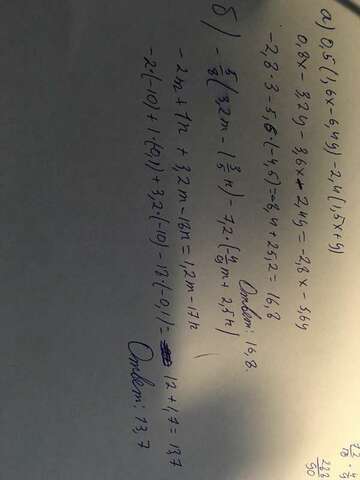 а) 0,5(1,6x-6,4y)-2,4(1,5x+y)
0,8x-3,2y-3,6x-2,4y=-2,8x-5,6y
-2,8·3-5,6·(-4,5)=-8,4+25,2=16,8
Ответ: 16,8.
б) -5/8(3,2m-1 3/5n)-7,2·(-4/9m+2,5n)
-2m+1n+3,2m-18n=1,2m-17n
-2·(-10)+1·(-0,1)+3,2·(-10)-18·(-0,1)= 12+1,7=13,7
Ответ: 13,7